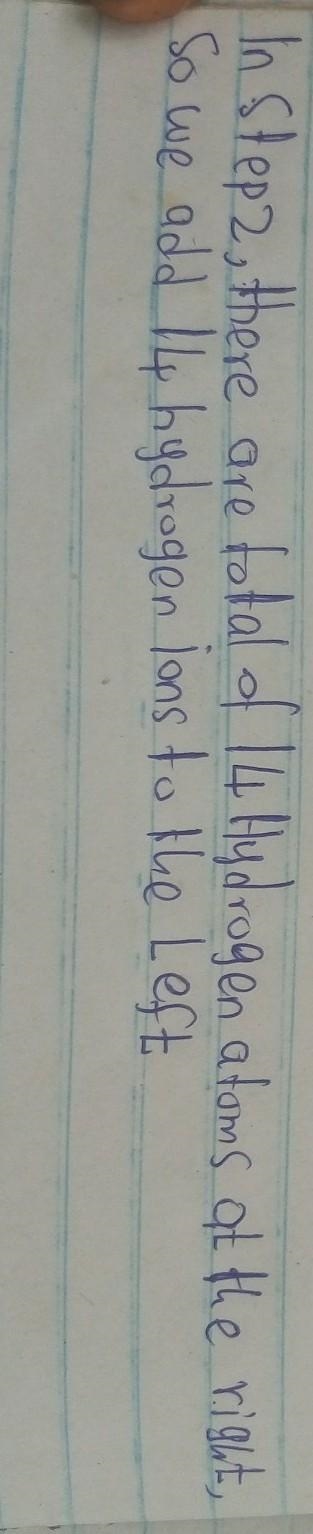 In Step2, there are total of 14 Hydrogen atoms at the right,
So we add 14 hydrogen ions to the Left